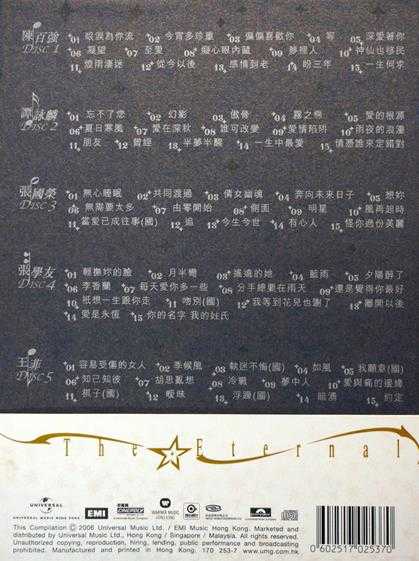 陳百強 DISC 1
01 眼淚為你流 02 今宵多珍重 03 偏偏喜歡你 04 等 05 深愛著你
06 凝望 07 至愛 08 癡心眼內藏 09 夢裡人 10 神仙也移民
11 煙雨淒迷 12 從今以後 13 感情到老 14 盼三年 15 一生何求
譚詠麟 DISC 2
01 忘不了您 02 幻影 03 傲骨 04 霧之戀 05 愛的根源
06 夏日寒風 07 愛在深秋 08 誰可改變 09 愛情陷阱 10 雨夜的浪漫
11 朋友 12 曾經 13 半夢半醒 14 一生中最愛 15 情憑誰來定錯對
張國榮 DISC 3
01 無心睡眠 02 共同渡過 03 倩女幽魂 04 奔向未來日子 05 想妳
06 無需要太多 07 由零開始 08 側面 09 明星 10 風再起時
11 當愛已成往事(國) 12 追 13 今生今世 14 有心人 15 怪你過份美麗
張學友 DISC 4
01 輕撫妳的臉 02 月半彎 03 遙遠的她 04 藍雨 05 夕陽醉了
06 李香蘭 07 每天愛你多一些 08 分手總要在雨天 09 還是覺得你最好
10 祇想一生跟你走 11 吻別(國) 12 我等到花兒也謝了 13 離開以後
14 愛是永恆 15 你的名字 我的姓氏
王菲 DISC 5
01 容易受傷的女人 02 季候風 03 執迷不悔(國) 04 如風 05 我願意(國)
06 知己知彼 07 胡思亂想 08 冷戰 09 夢中人 10 愛與痛的邊緣
11 棋子(國) 12 曖昧 13 浮躁(國) 14 暗湧 15 約定
The Eternal
UNIVERSAL
UNIVERSAL MUSIC HONG KONG
EMI
WARNER MUSIC
HONG KONG
This Compilation ℗ 2006 Universal Music Ltd. / EMI Music Hong Kong. Marketed and
distributed by Universal Music Ltd. / EMI Music Hong Kong.
Hong Kong / Singapore / Malaysia. All rights reserved.
Unauthorized copying, reproduction, hiring, lending, public performance and broadcasting
prohibited. Manufactured and printed in Hong Kong. 170 253-7 www.umg.com.hk
0 602517 025370